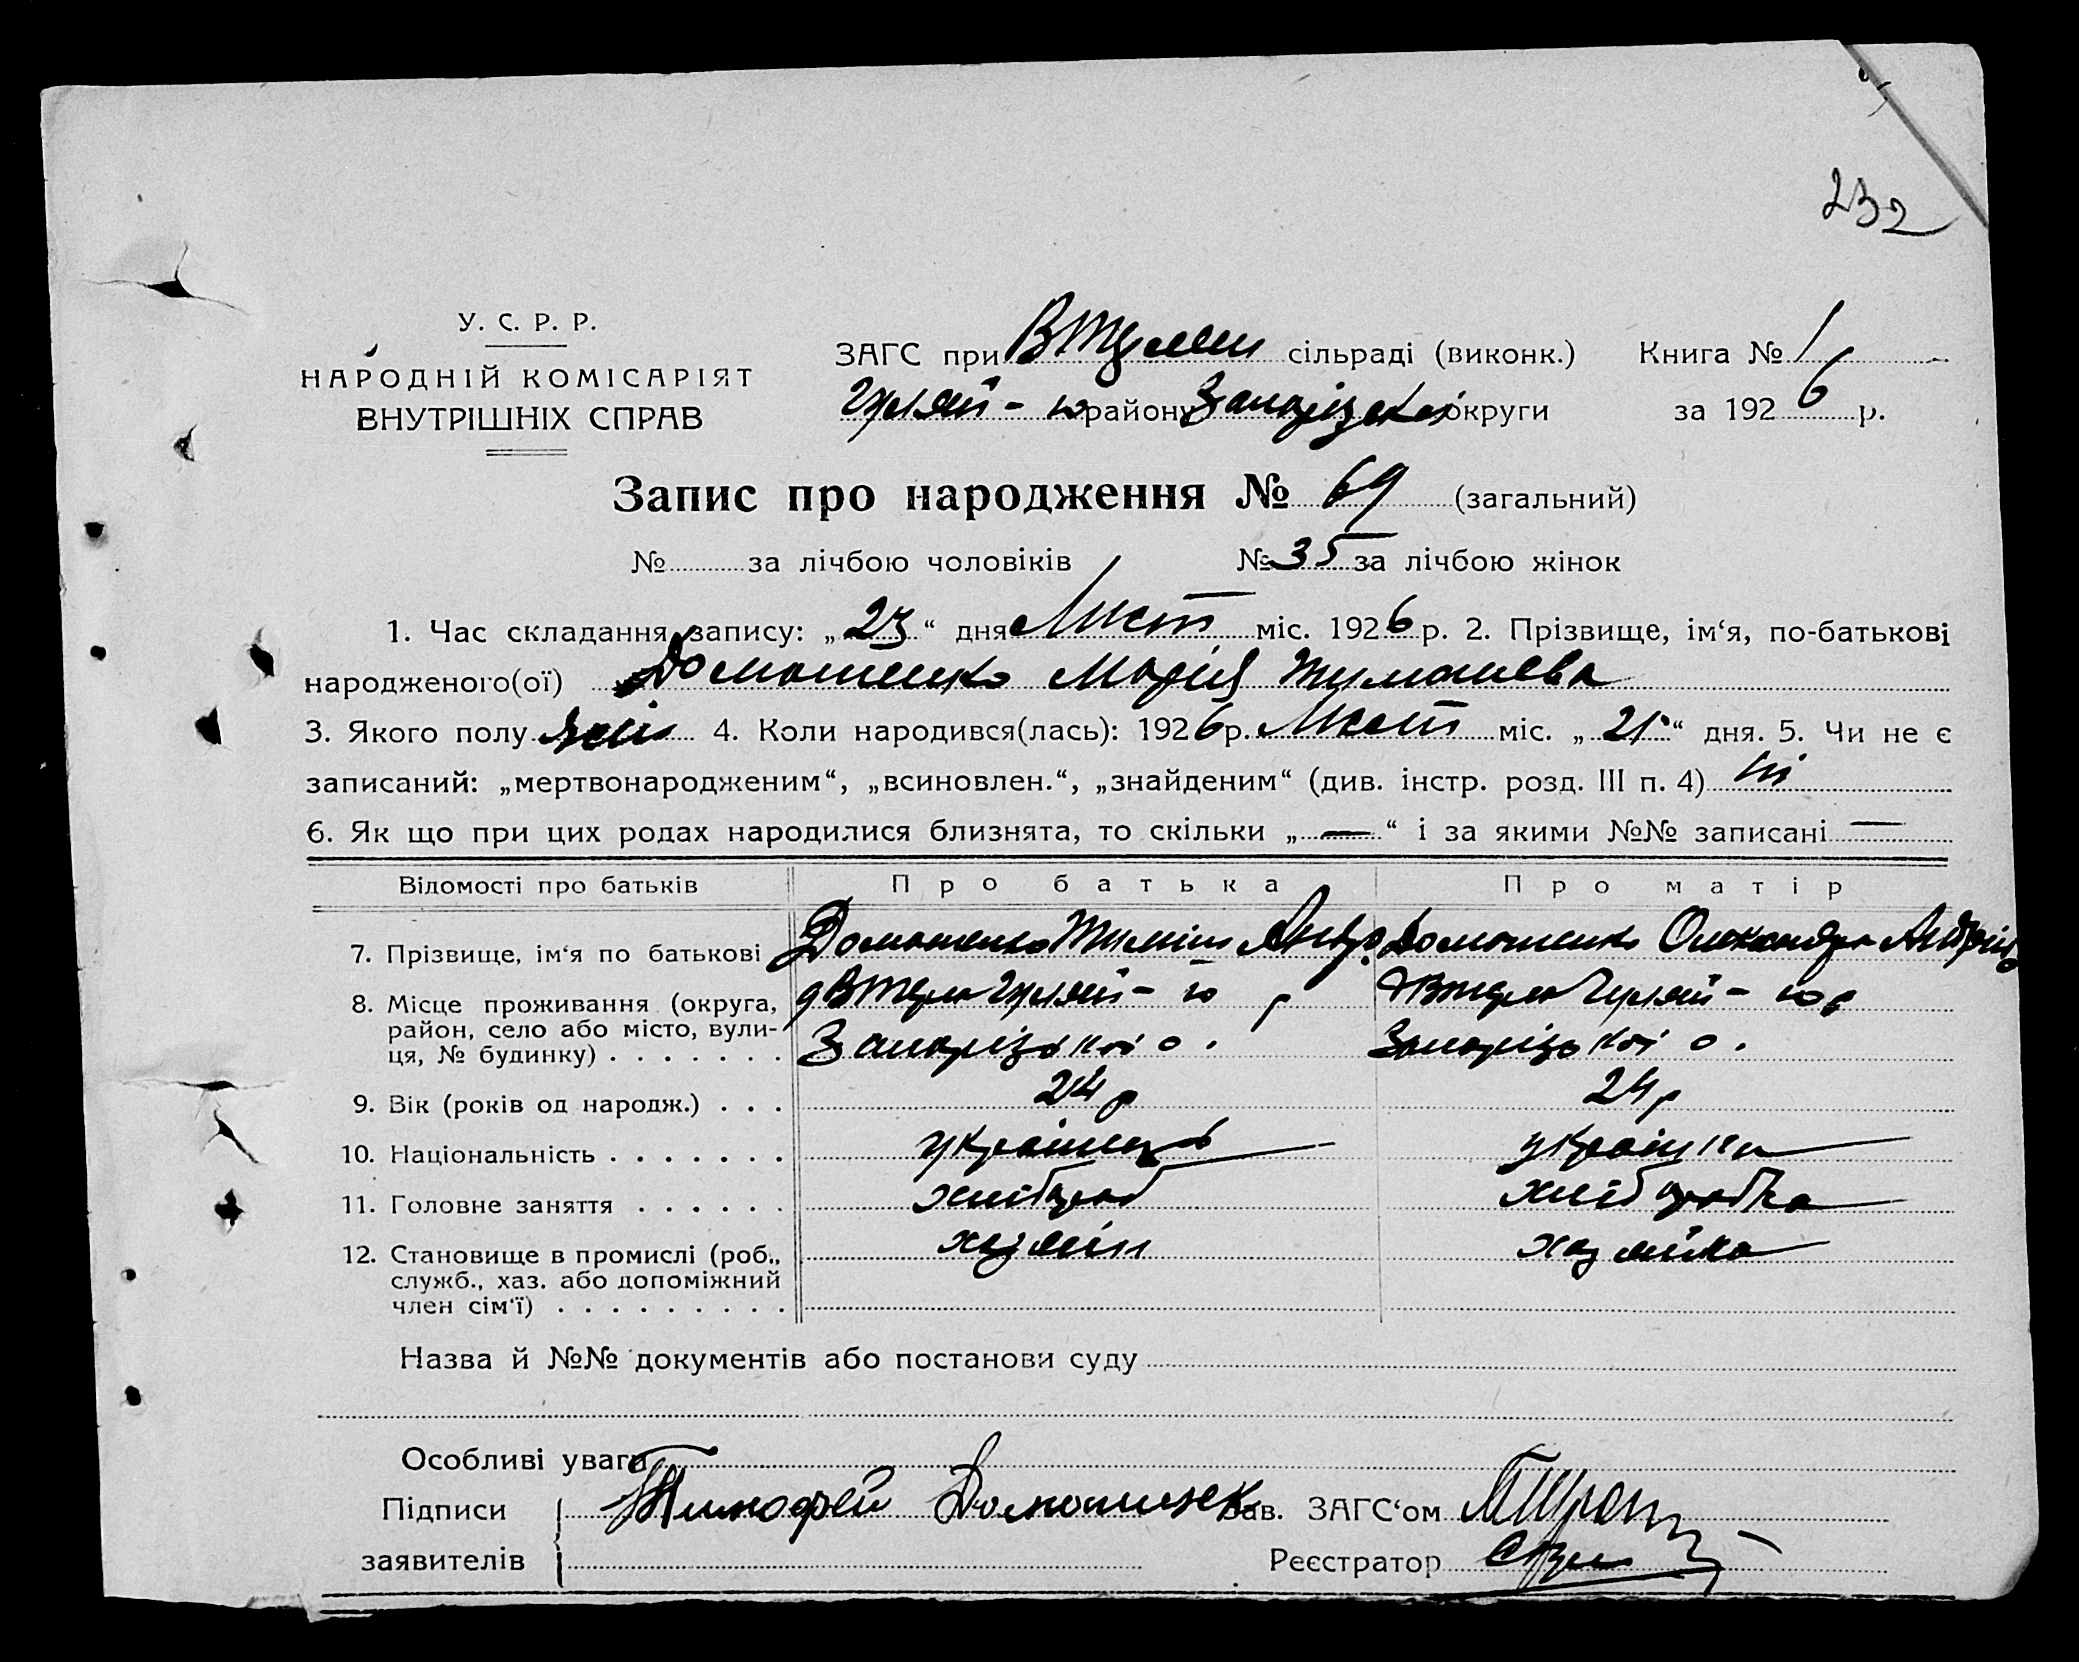 232
У. С. Р. Р.
НАРОДНІЙ КОМІСАРІЯТ
ВНУТРІШНІХ СПРАВ
ЗАГС при сільраді (виконк.) Книга № 1
Гуляй-ю району Запорізької округи за 1926 р.
Запис про народження № 69 (загальний)
№ за лічбою чоловіків № 35 за лічбою жінок
1. Час складання запису: „23“ дня Лист міс. 1926 р. 2. Прізвище, ім‘я, по-батькові
народженого(ої) Домашенко Марія Тимошева
3. Якого полу жін 4. Коли народився(лась): 1926 р. Лист міс. „21“ дня. 5. Чи не є
записаний: „мертвонародженим“, „всиновлен.“, „знайденим“ (див. інстр. розд. III п. 4) ні
6. Як що при цих родах народилися близнята, то скільки „—“ і за якими №№ записані —
Відомості про батьків Про батька Про матір
7. Прізвище, ім‘я по батькові Домашенко Тиміш Домашенко Олександра
8. Місце проживання (округа, Гуляй-ю р Гуляй-ю р
район, село або місто, вули-
ця, № будинку) . . . . . . . Запорізької о. Запорізької о.
9. Вік (років од народж.) . . . 24 р 24 р
10. Національність . . . . . . . українець українка
11. Головне заняття . . . . . . хлібороб хліборобка
12. Становище в промислі (роб., хазяїн хазяйка
служб., хаз. або допоміжний
член сім‘ї) . . . . . . . . .
Назва й №№ документів або постанови суду
Особливі уваги
Підписи Тимофей Домашенк Зав. ЗАГС‘ом
заявителів Реєстратор